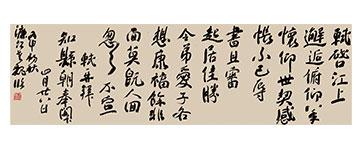 軾啓江上
邂逅俯仰八年
懷仰世契感
悵不已辱
書且審
起居佳勝
令弟愛子各
想康福餘非
面莫既人回
匆匆不宣
軾再拜
知縣朝奉閣
四月廿八日
丙申初秋